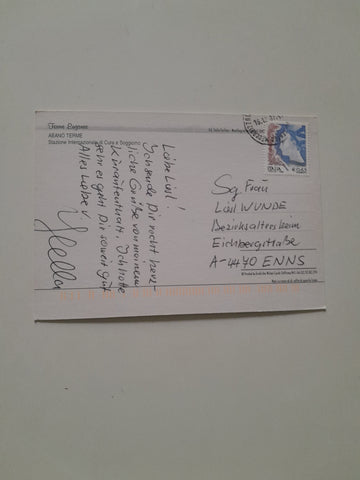 Terme Euganee
ABANO TERME
Stazione Internazionale di Cura e Soggiorno
Liebe Liesl!
Ich sende Dir recht herz-
liche Grüße von meinem
Kuraufenthalt. Ich hoffe
sehr es geht Dir soweit gut
Alles Liebe v.
Hella
ITALIA € 0,45
Sg Frau
Liesl WUNDE
Bezirksaltersheim
Eichbergstraße
A-4470 ENNS